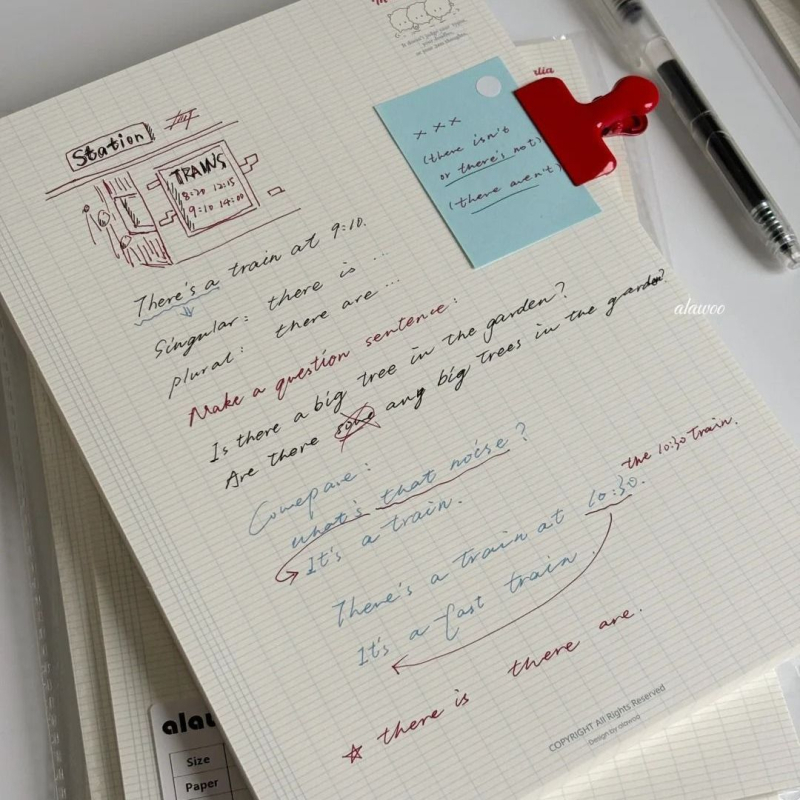 Station
TRAINS
8:20 12:15
9:10 14:00
× × ×
(there isn't
or there's not)
(there aren't)
There's a train at 9:10.
Singular: there is ...
plural: there are ...
Make a question sentence:
Is there a big tree in the garden?
Are there some any big trees in the garden?
Compare:
what's that noise?
It's a train.
the 10:30 train.
There's a train at 10:30.
It's a fast train.
☆ there is there are.
alawoo
COPYRIGHT All Rights Reserved
Design by alawoo
Size
Paper